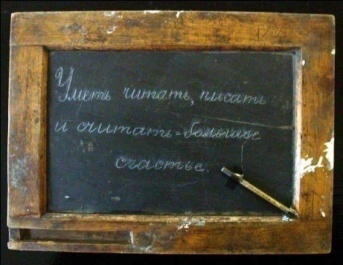 Уметь читать, писать
и считать-большое
счастье.